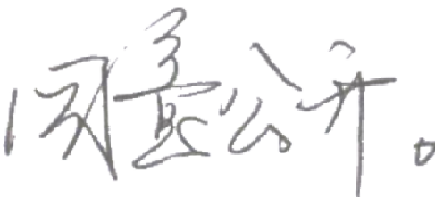 同意公开。